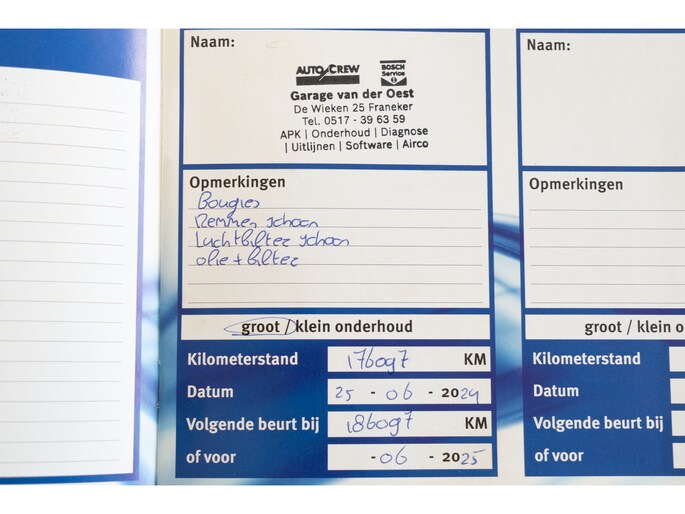 Naam:
AUTO CREW
BOSCH
Service
Garage van der Oest
De Wieken 25 Franeker
Tel. 0517 - 39 63 59
APK | Onderhoud | Diagnose
| Uitlijnen | Software | Airco
Opmerkingen
Bougies
Remmen schoon
Luchtfilter schoon
olie + filter
groot / klein onderhoud
Kilometerstand 176097 KM
Datum 25 - 06 - 2024
Volgende beurt bij 186097 KM
of voor - 06 - 2025
Naam:
Opmerkingen
groot / klein o
Kilometerstand
Datum
Volgende beurt bij
of voor